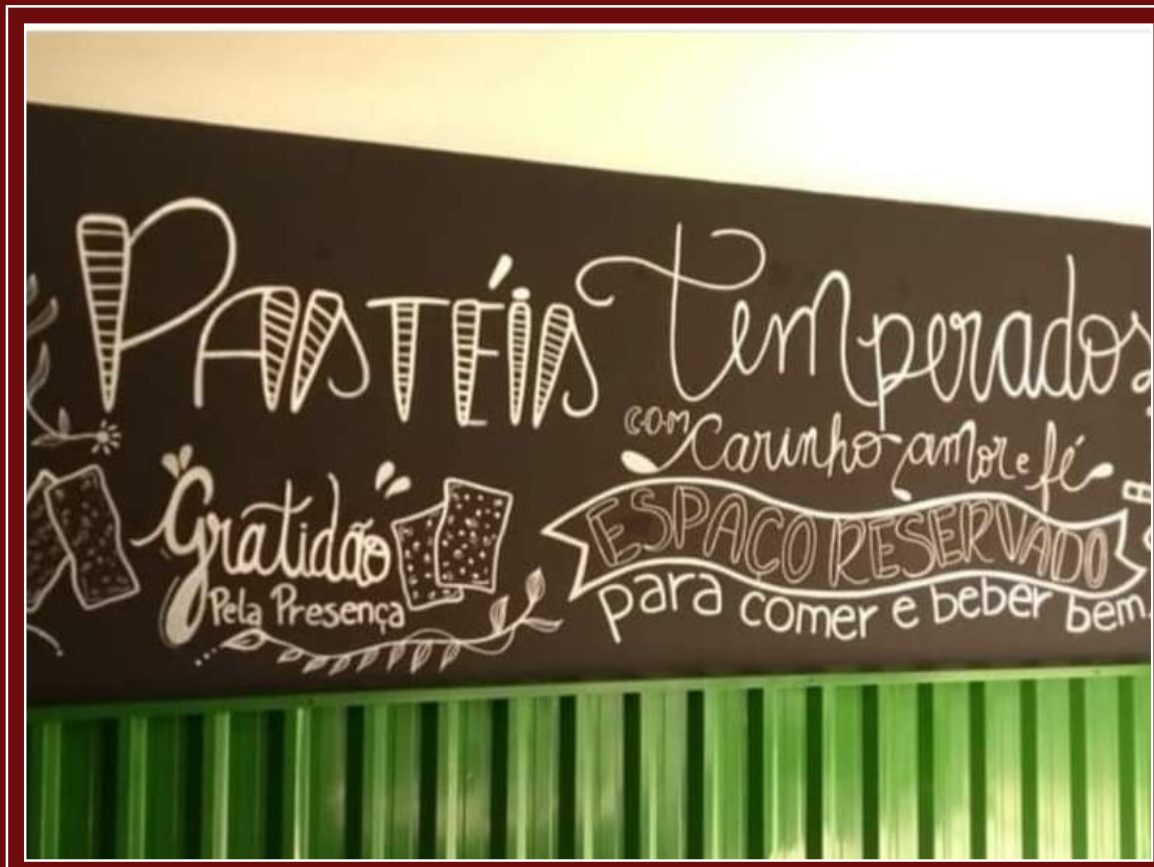 PASTÉIS Temperados
com Carinho amor e fé
Gratidão
Pela Presença
ESPAÇO RESERVADO
para comer e beber bem.